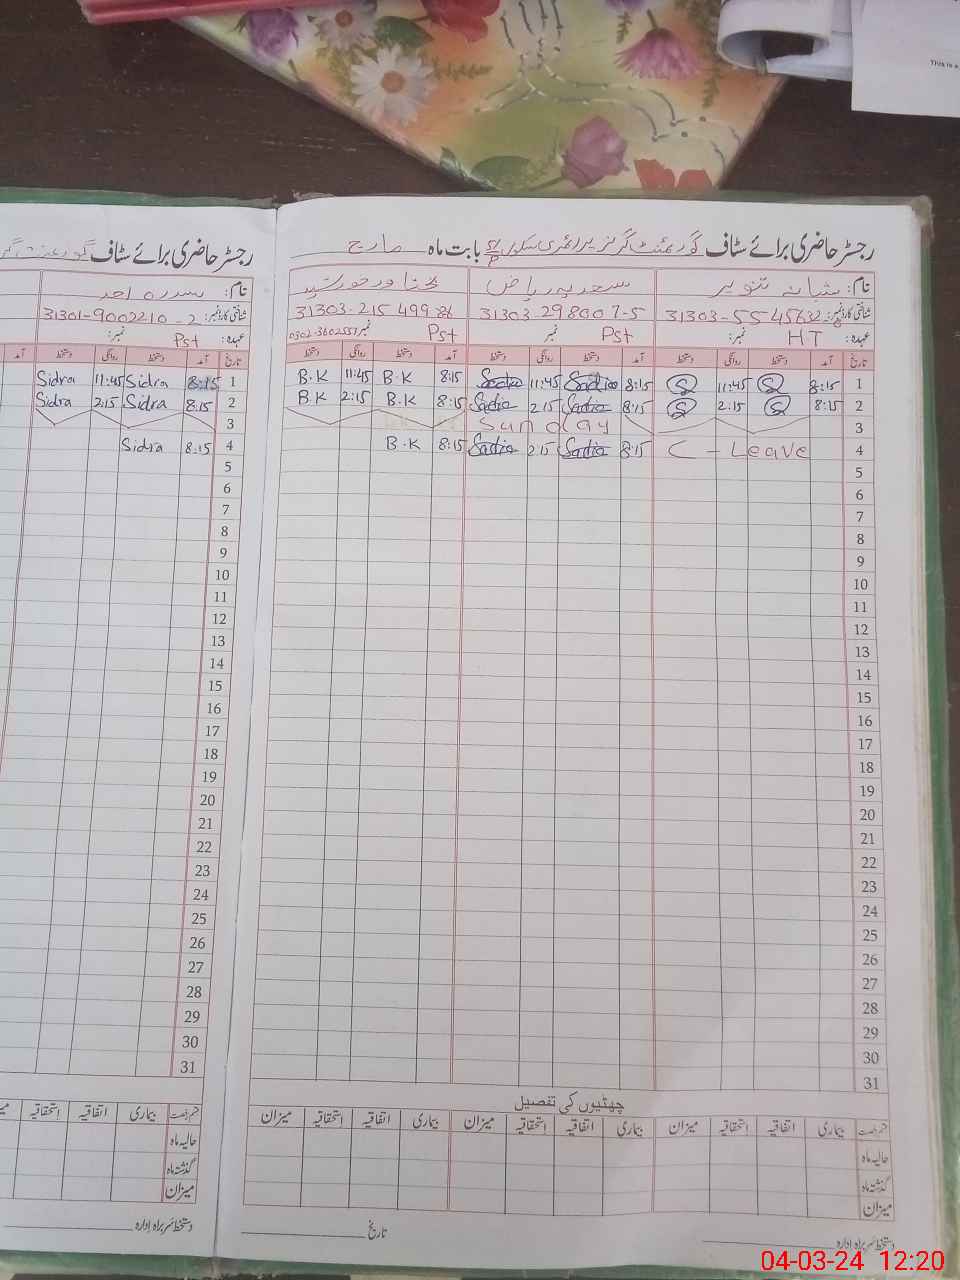 This is a
رجسٹر حاضری برائے سٹاف گورنمنٹ گرلز پرائمری سکول بابت ماہ مارچ
نام: شبانہ تنویر سعدیہ ریاض بختاور خورشید
شناختی کارڈ نمبر: 31303-5545632 31303-298007-5 31303-215499
عہدہ: HT نمبر: Pst نمبر Pst نمبر 0302-3602557
تاریخ آمد دستخط روانگی دستخط آمد دستخط روانگی دستخط آمد دستخط روانگی دستخط
1 8:15 S 11:45 S 8:15 Sadia 11:45 Sadia 8:15 B.K 11:45 B.K
2 8:15 S 2:15 S 8:15 Sadia 2:15 Sadia 8:15 B.K 2:15 B.K
3 Sunday
4 C - Leave 8:15 Sadia 2:15 Sadia 8:15 B.K
5
6
7
8
9
10
11
12
13
14
15
16
17
18
19
20
21
22
23
24
25
26
27
28
29
30
31
چھٹیوں کی تفصیل
قسم رخصت بیماری اتفاقیہ استحقاقیہ میزان بیماری اتفاقیہ استحقاقیہ میزان بیماری اتفاقیہ استحقاقیہ میزان
حالیہ ماہ
گذشتہ ماہ
میزان
دستخط سربراہ ادارہ تاریخ
رجسٹر حاضری برائے سٹاف گورنمنٹ
نام: سدرہ احد
شناختی کارڈ نمبر: 31301-9002210-2
عہدہ: Pst نمبر:
تاریخ آمد دستخط روانگی دستخط آمد
1 8:15 Sidra 11:45 Sidra
2 8:15 Sidra 2:15 Sidra
3
4 8:15 Sidra
5
6
7
8
9
10
11
12
13
14
15
16
17
18
19
20
21
22
23
24
25
26
27
28
29
30
31
قسم رخصت بیماری اتفاقیہ استحقاقیہ
حالیہ ماہ
گذشتہ ماہ
میزان
دستخط سربراہ ادارہ
04-03-24 12:20